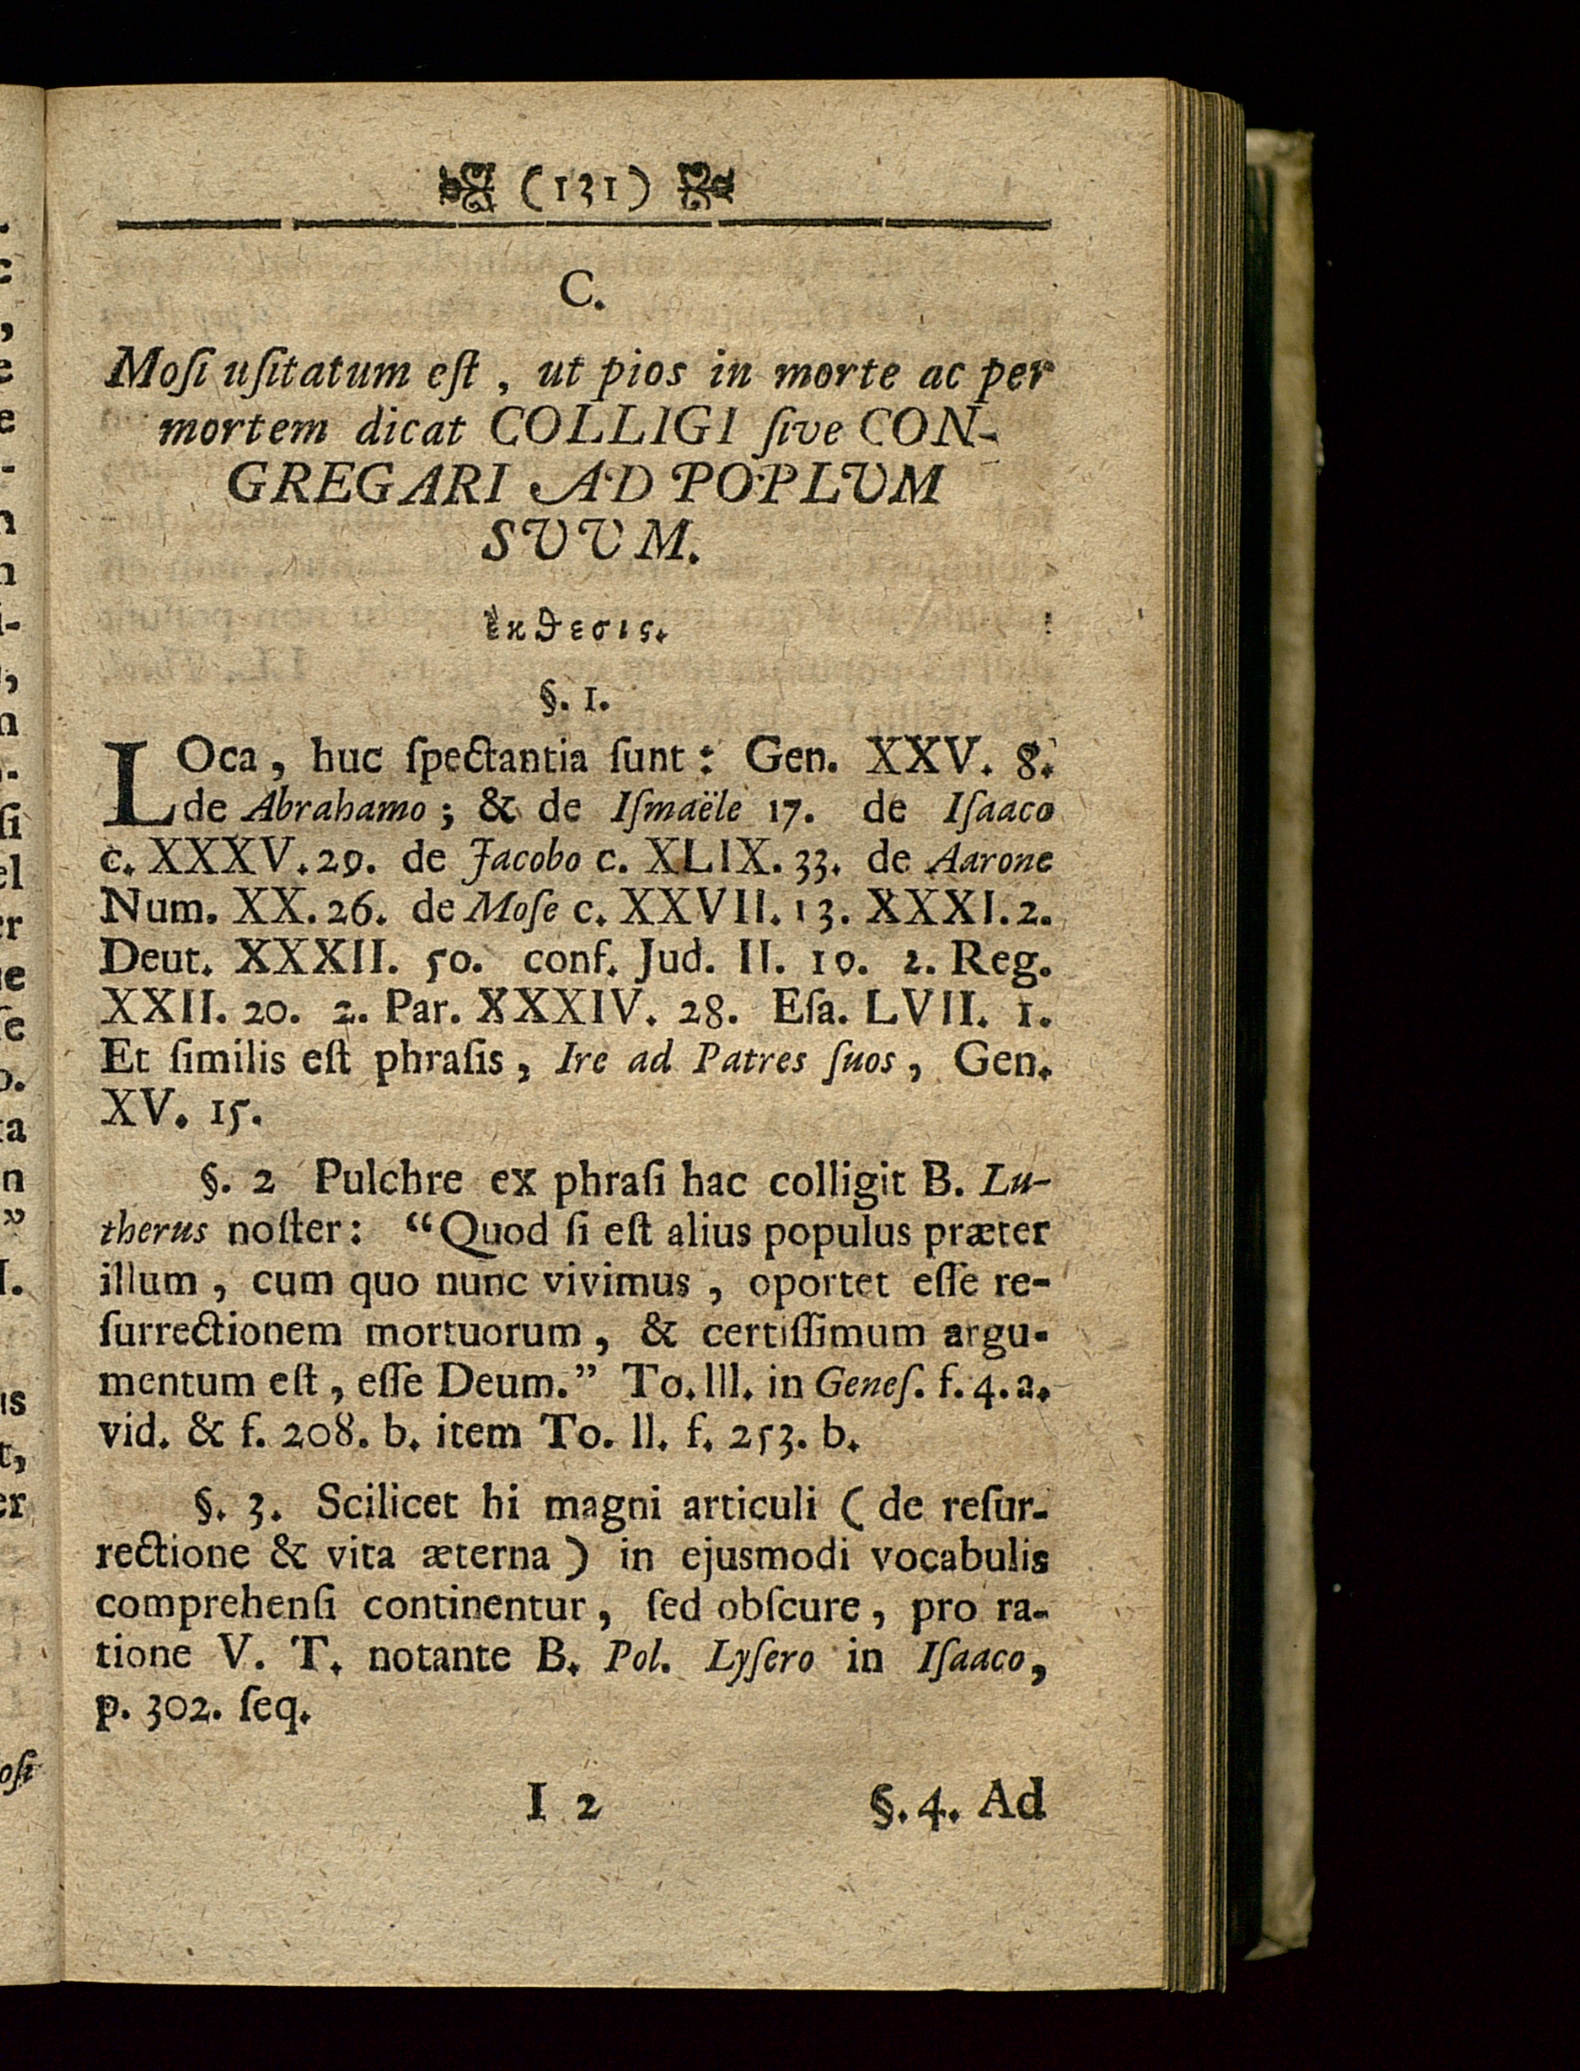 (131)
C.
Moſi uſitatum eſt, ut pios in morte ac per
mortem dicat COLLIGI ſive CON-
GREGARI AD POPLUM
SUUM.
ἔκθεσις.
§. 1.
LOca, huc ſpectantia ſunt: Gen. XXV. 8.
de Abrahamo; & de Iſmaële 17. de Iſaaco
c. XXXV. 29. de Jacobo c. XLIX. 33. de Aarone
Num. XX. 26. de Moſe c. XXVII. 13. XXXI. 2.
Deut. XXXII. 50. conf. Jud. II. 10. 2. Reg.
XXII. 20. 2. Par. XXXIV. 28. Eſa. LVII. 1.
Et ſimilis eſt phraſis, Ire ad Patres ſuos, Gen.
XV. 15.
§. 2 Pulchre ex phraſi hac colligit B. Lu-
therus noſter: “Quod ſi eſt alius populus præter
illum, cum quo nunc vivimus, oportet eſſe re-
ſurrectionem mortuorum, & certiſſimum argu-
mentum eſt, eſſe Deum.” To. lll. in Geneſ. f. 4. a.
vid. & f. 208. b. item To. ll. f. 253. b.
§. 3. Scilicet hi magni articuli (de reſur-
rectione & vita æterna) in ejusmodi vocabulis
comprehenſi continentur, ſed obſcure, pro ra-
tione V. T. notante B. Pol. Lyſero in Iſaaco,
p. 302. ſeq.
I 2 §. 4. Ad